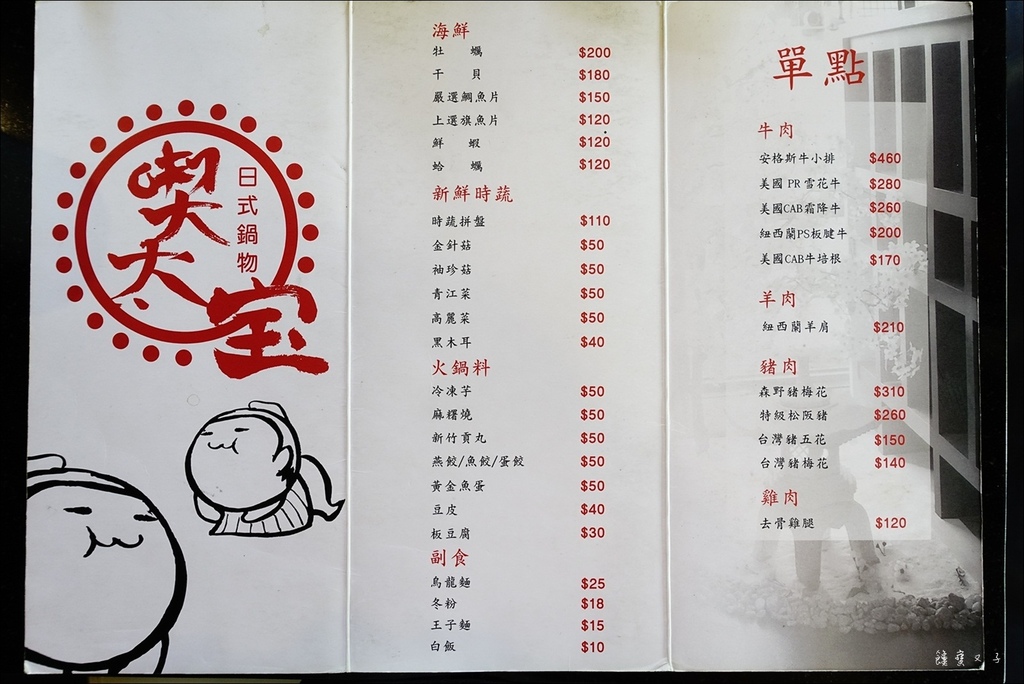 喫大宝
日式鍋物
海鮮
牡蠣 $200
干貝 $180
嚴選鯛魚片 $150
上選旗魚片 $120
鮮蝦 $120
蛤蠣 $120
新鮮時蔬
時蔬拼盤 $110
金針菇 $50
袖珍菇 $50
青江菜 $50
高麗菜 $50
黑木耳 $40
火鍋料
冷凍芋 $50
麻糬燒 $50
新竹貢丸 $50
燕餃/魚餃/蛋餃 $50
黃金魚蛋 $50
豆皮 $40
板豆腐 $30
副食
烏龍麵 $25
冬粉 $18
王子麵 $15
白飯 $10
單點
牛肉
安格斯牛小排 $460
美國PR雪花牛 $280
美國CAB霜降牛 $260
紐西蘭PS板腱牛 $200
美國CAB牛培根 $170
羊肉
紐西蘭羊肩 $210
豬肉
森野豬梅花 $310
特級松阪豬 $260
台灣豬五花 $150
台灣豬梅花 $140
雞肉
去骨雞腿 $120